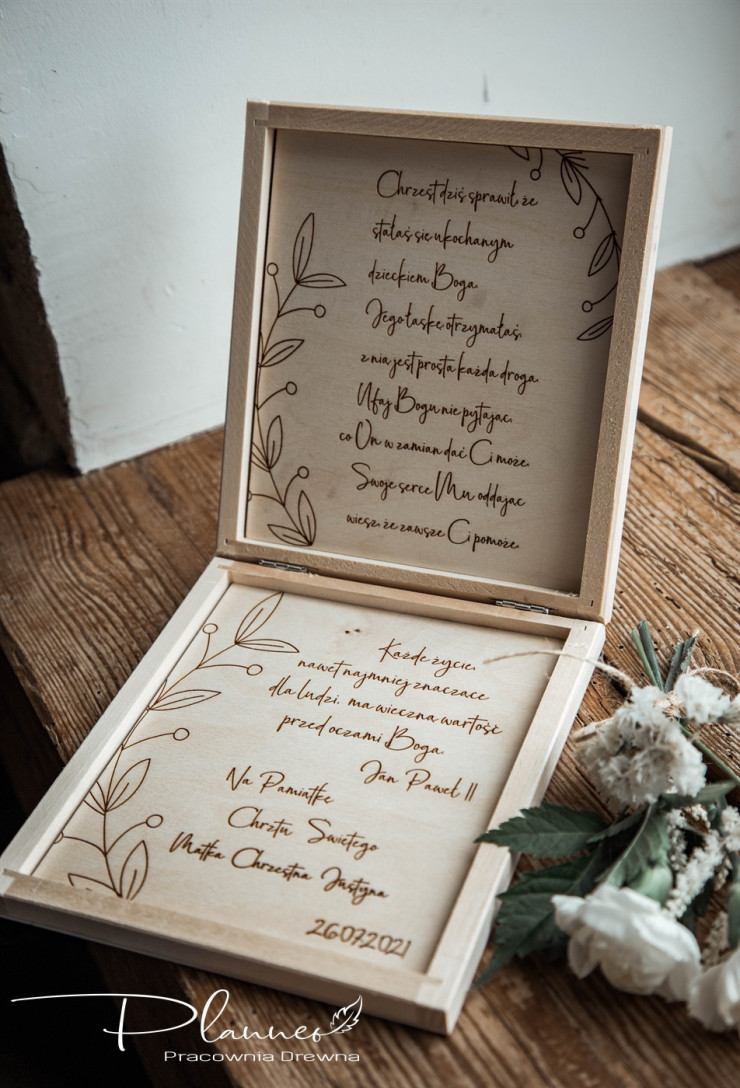 Chrzest dziś sprawił, że
stałaś się ukochanym
dzieckiem Boga.
Jego łaskę otrzymałaś,
z nią jest prosta każda droga.
Ufaj Bogu nie pytając,
co On w zamian dać Ci może.
Swoje serce Mu oddając
wiesz, że zawsze Ci pomoże.
Każde życie,
nawet najmniej znaczące
dla ludzi, ma wieczną wartość
przed oczami Boga.
Jan Paweł II
Na Pamiątkę
Chrztu Świętego
Matka Chrzestna Justyna
26.07.2021
Planneo
Pracownia Drewna